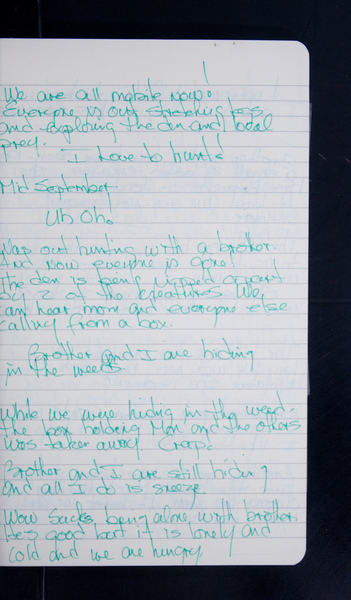 We are all mobile now!
Everyone is out stretching legs
and exploring the den and local
prey.
I love to hunt!
Mid September
Uh Oh.
Was out hunting with a brother.
And now everyone is gone!
The den is being ripped appart
by 2 of the creatures. We
can hear mom and everyone else
calling from a box.
Brother and I are hiding
in the weeds.
While we were hiding in the weed-
the box holding Mom and the others
was taken away. Crap!
Brother and I are still hiding
and all I do is sneeze
Wow sucks being alone with brother.
He's good but it is lonely and
cold and we are hungry